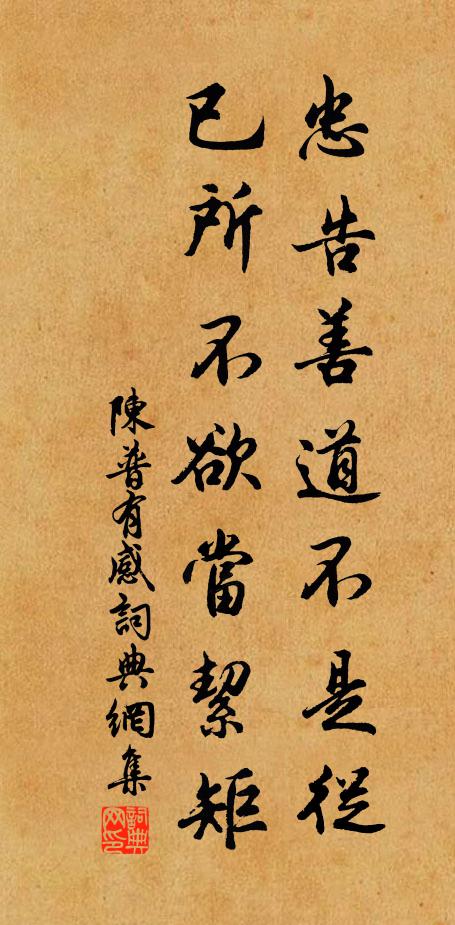 忠告善道不是從
已所不欲當絜矩
陳普有感詞典網集
詞典网印